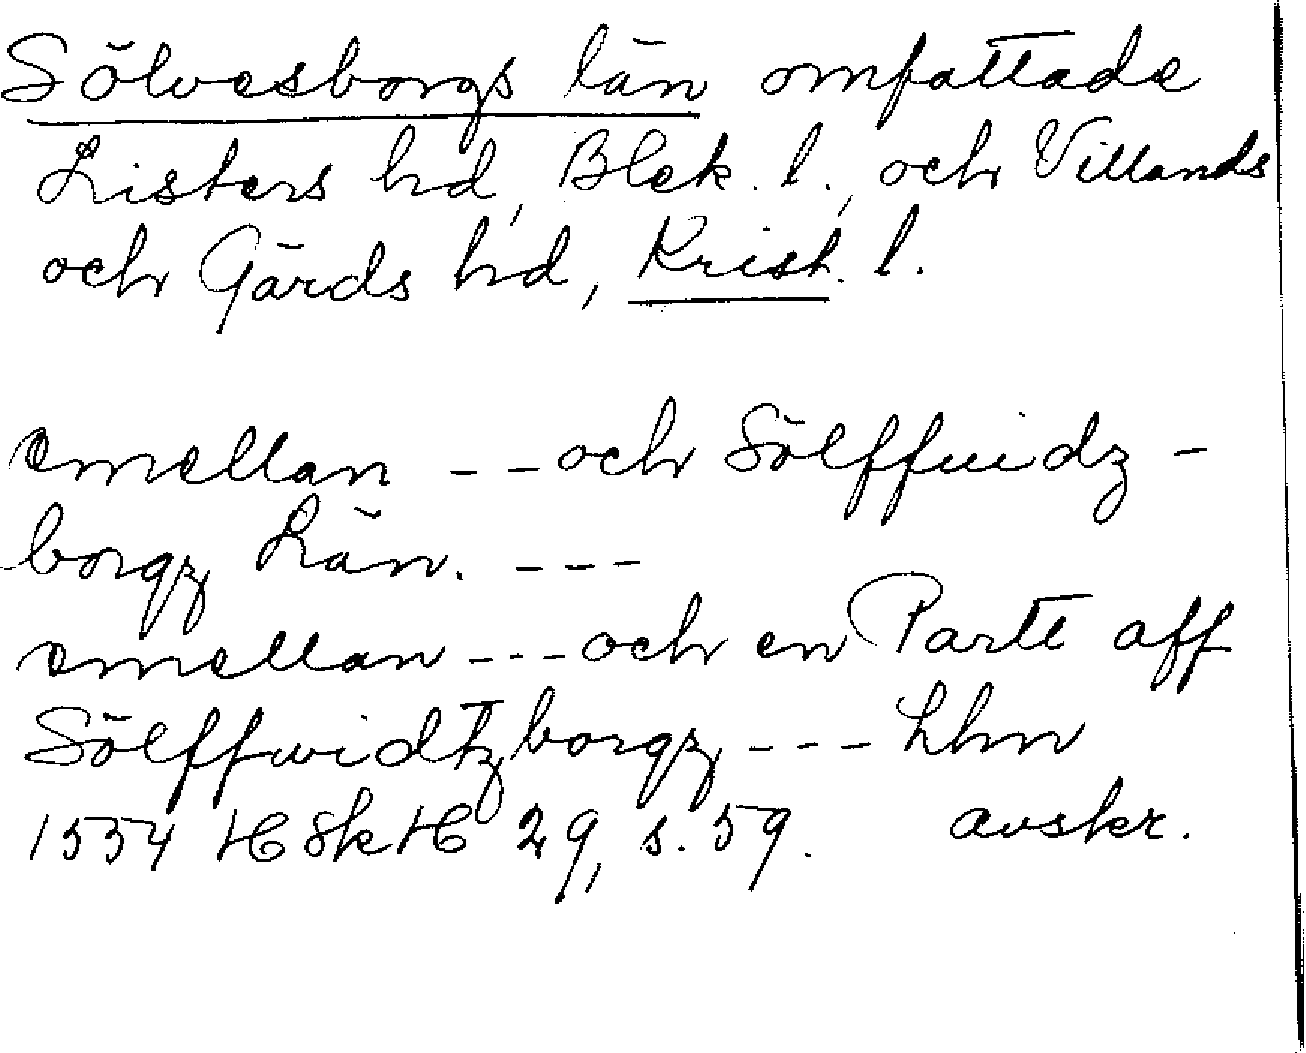 Sölvesborgs län omfattade
Listers hd, Blek. l., och Villands
och Gärds hd, Krist. l.
emellan - - och Sölffuidz-
borgz Län. - - -
emellan - - - och en Partt aff
Sölffwidtzborgz - - - Lhn
1554 HSkH 29, s. 59. avskr.